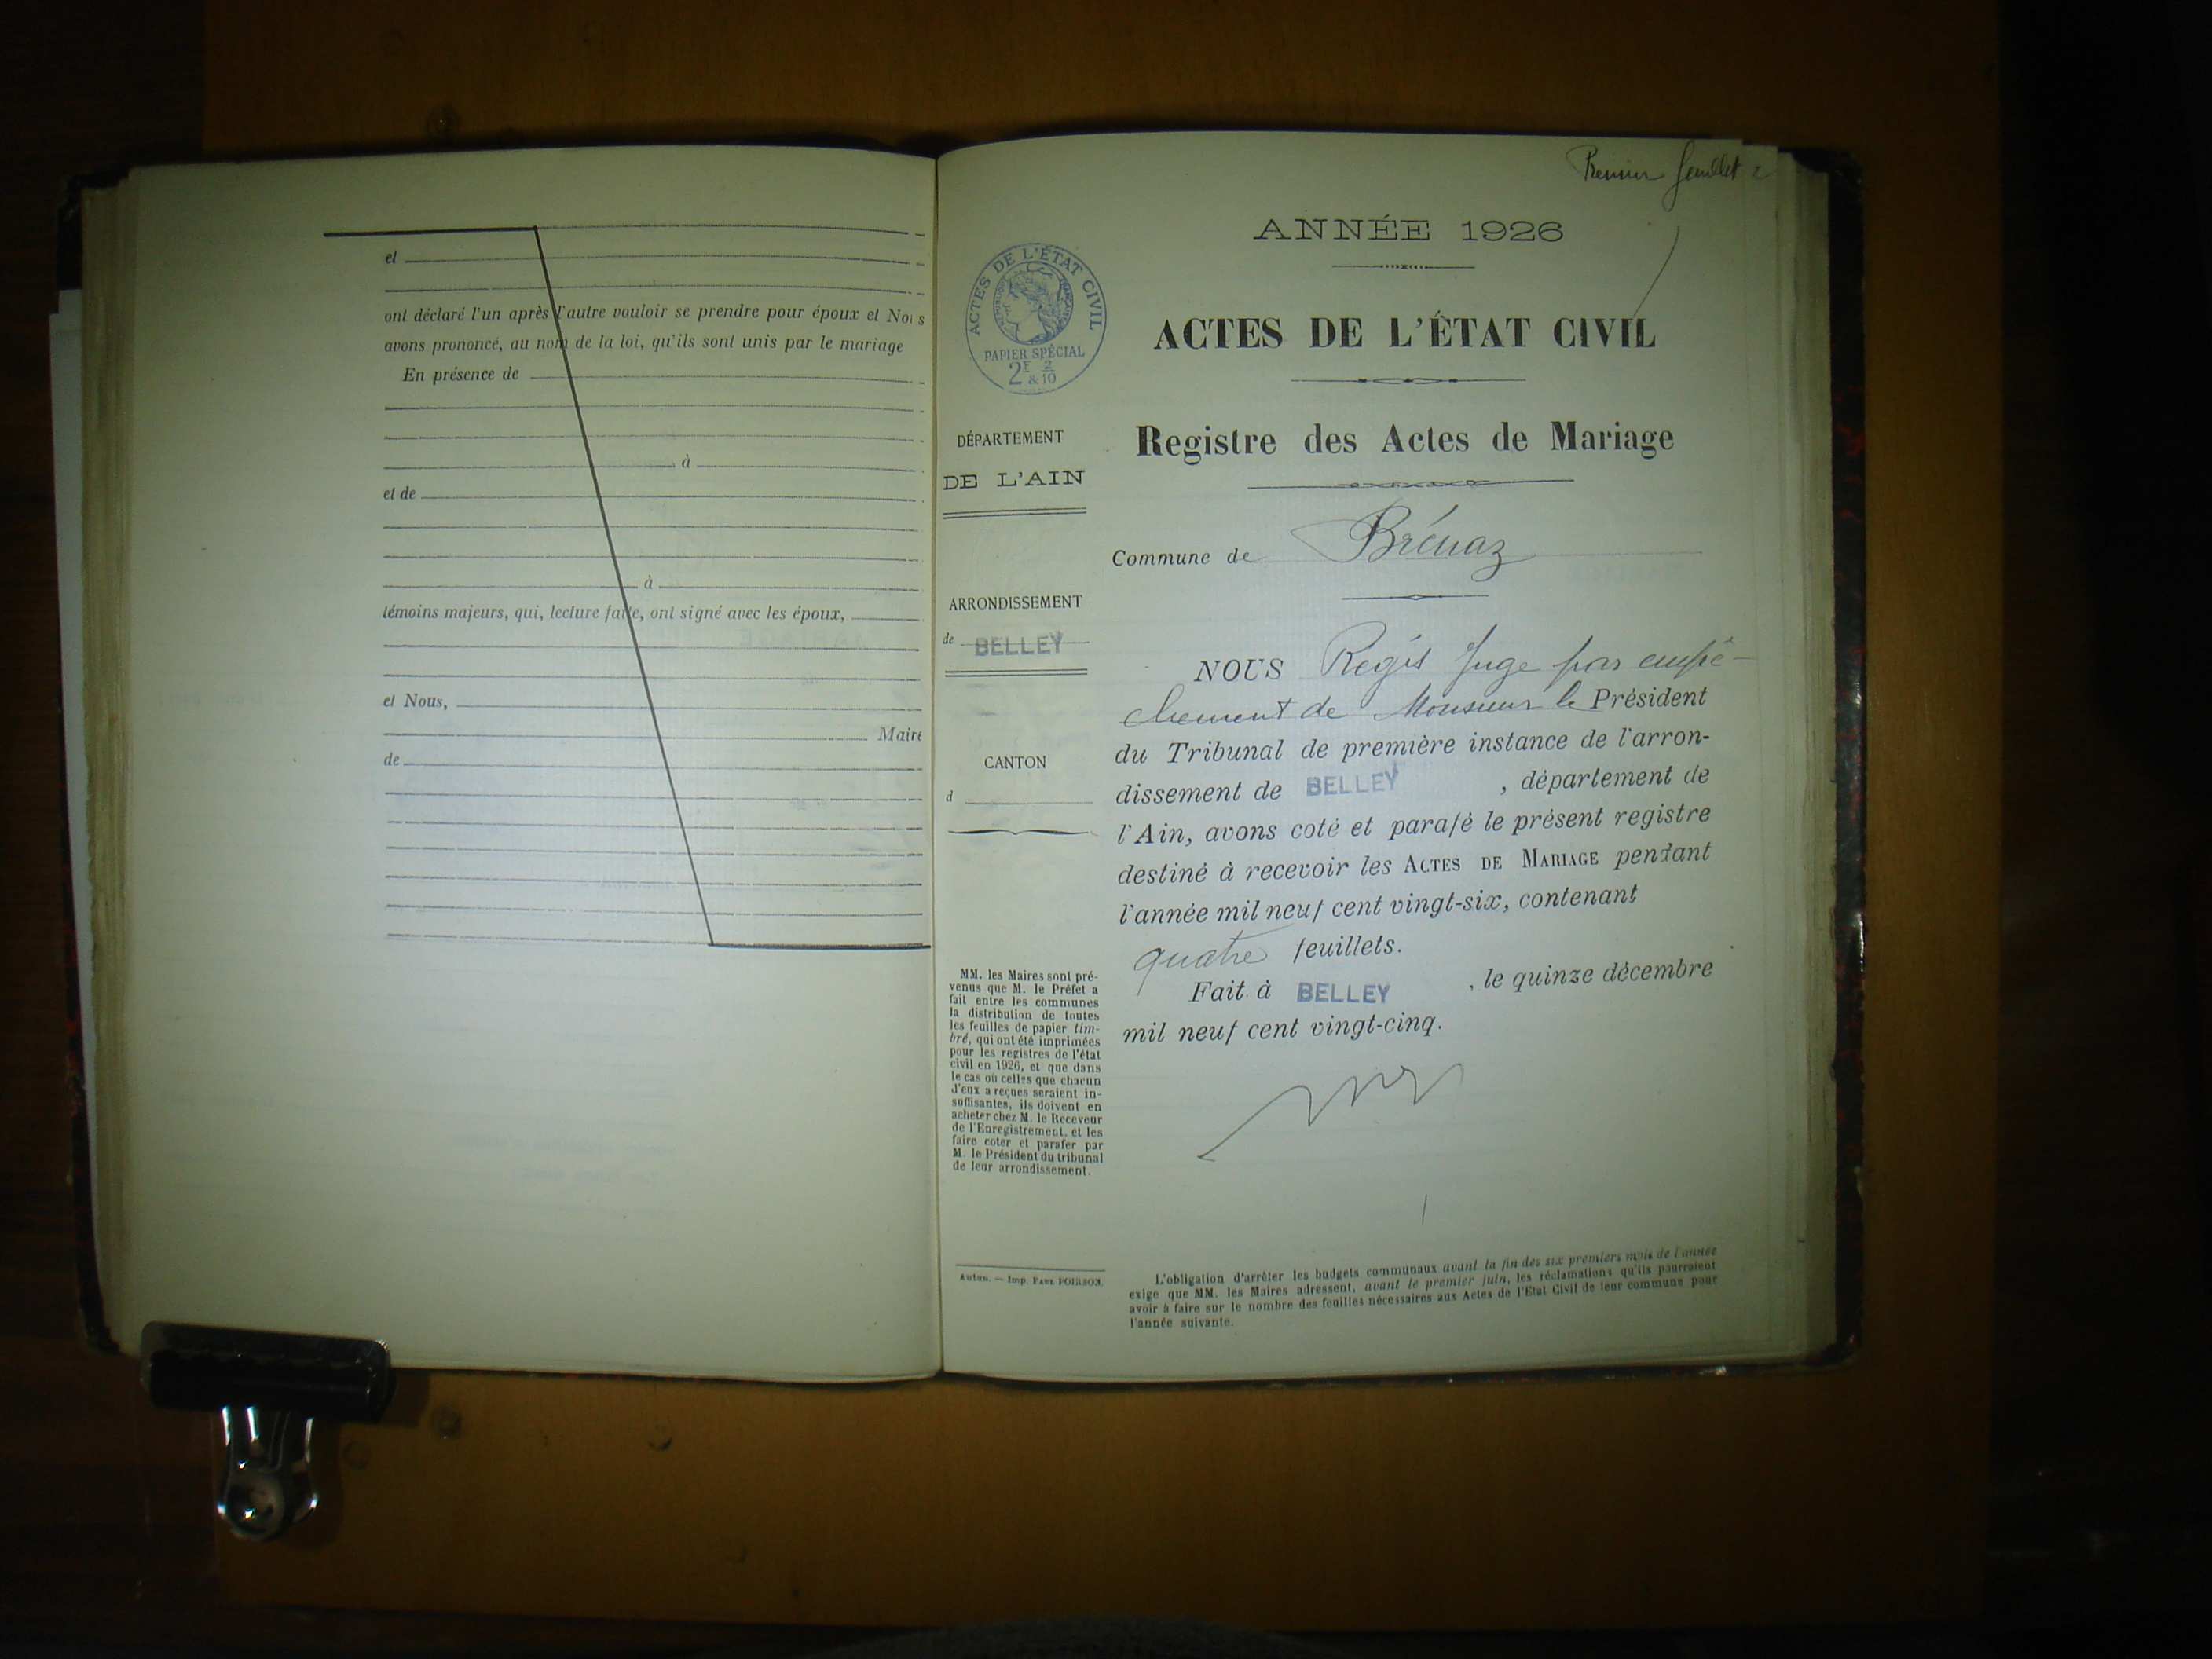 et
ont déclaré l'un après l'autre vouloir se prendre pour époux et Nous
avons prononcé, au nom de la loi, qu'ils sont unis par le mariage
En présence de
à
et de
à
témoins majeurs, qui, lecture faite, ont signé avec les époux,
et Nous,
Maire
de
Premier feuillet
ANNÉE 1926
ACTES DE L'ÉTAT CIVIL
RÉPUBLIQUE FRANÇAISE
PAPIER SPÉCIAL
2F 2
& 10
ACTES DE L'ÉTAT CIVIL
Registre des Actes de Mariage
DÉPARTEMENT
DE L'AIN
Commune de Brénaz
ARRONDISSEMENT
de BELLEY
CANTON
d
NOUS Regis Juge par empê-
chement de Monsieur le Président
du Tribunal de première instance de l'arron-
dissement de BELLEY, département de
l'Ain, avons coté et parafé le présent registre
destiné à recevoir les ACTES DE MARIAGE pendant
l'année mil neuf cent vingt-six, contenant
quatre feuillets.
Fait à BELLEY, le quinze décembre
mil neuf cent vingt-cinq.
MM. les Maires sont pré-
venus que M. le Préfet a
fait entre les communes
la distribution de toutes
les feuilles de papier tim-
bré, qui ont été imprimées
pour les registres de l'état
civil en 1926, et que dans
le cas où celles que chacun
d'eux a reçues seraient in-
suffisantes, ils doivent en
acheter chez M. le Receveur
de l'Enregistrement, et les
faire coter et parafer par
M. le Président du tribunal
de leur arrondissement.
Autun. — Imp. PAUL POIRSON.
L'obligation d'arrêter les budgets communaux avant la fin des six premiers mois de l'année
exige que MM. les Maires adressent, avant le premier juin, les réclamations qu'ils pourraient
avoir à faire sur le nombre des feuilles nécessaires aux Actes de l'Etat Civil de leur commune pour
l'année suivante.